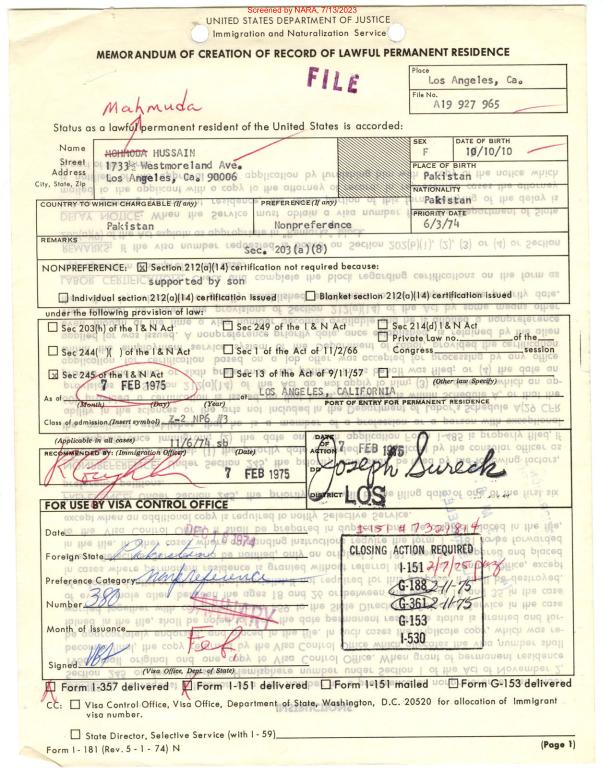 Screened by NARA, 7/13/2023
UNITED STATES DEPARTMENT OF JUSTICE
Immigration and Naturalization Service
MEMORANDUM OF CREATION OF RECORD OF LAWFUL PERMANENT RESIDENCE
FILE
Place
Los Angeles, Ca.
File No.
A19 927 965
Mahmuda
Status as a lawful permanent resident of the United States is accorded:
Name
MOHMODA HUSSAIN
Street Address
1733½ Westmoreland Ave.
City, State, Zip
Los Angeles, Ca. 90006
SEX
F
DATE OF BIRTH
10/10/10
PLACE OF BIRTH
Pakistan
NATIONALITY
Pakistan
COUNTRY TO WHICH CHARGEABLE (If any)
Pakistan
PREFERENCE (If any)
Nonpreference
PRIORITY DATE
6/3/74
REMARKS
Sec. 203(a)(8)
NONPREFERENCE: ☒ Section 212(a)(14) certification not required because:
supported by son
☐ Individual section 212(a)(14) certification issued ☐ Blanket section 212(a)(14) certification issued
under the following provision of law:
☐ Sec 203(h) of the I & N Act ☐ Sec 249 of the I & N Act ☐ Sec 214(d) I & N Act
☐ Private Law no. of the
☐ Sec 244( )( ) of the I & N Act ☐ Sec 1 of the Act of 11/2/66 Congress session
☒ Sec 245 of the I & N Act ☐ Sec 13 of the Act of 9/11/57 ☐
(Other law Specify)
As of 7 FEB 1975 at LOS ANGELES, CALIFORNIA
(Month) (Day) (Year) PORT OF ENTRY FOR PERMANENT RESIDENCE
Class of admission (Insert symbol) Z-2 NP6 #3
(Applicable in all cases) 11/6/74 sb
RECOMMENDED BY: (Immigration Officer) (Date)
7 FEB 1975
DATE OF ACTION
7 FEB 1975
DD
Joseph Sureck
DISTRICT LOS
FOR USE BY VISA CONTROL OFFICE
Date
I-151 # 732,814
Foreign State Pakistan
Preference Category Nonpreference
Number 380
Month of Issuance Feb.
Signed
(Visa Office, Dept. of State)
CLOSING ACTION REQUIRED
I-151 2/7/75
G-188 2-11-75
G-361 2-11-75
G-153
I-530
Form I-357 delivered Form I-151 delivered ☐ Form I-151 mailed ☐ Form G-153 delivered
CC: ☐ Visa Control Office, Visa Office, Department of State, Washington, D.C. 20520 for allocation of Immigrant
visa number.
☐ State Director, Selective Service (with I-59)
Form I-181 (Rev. 5-1-74) N
(Page 1)